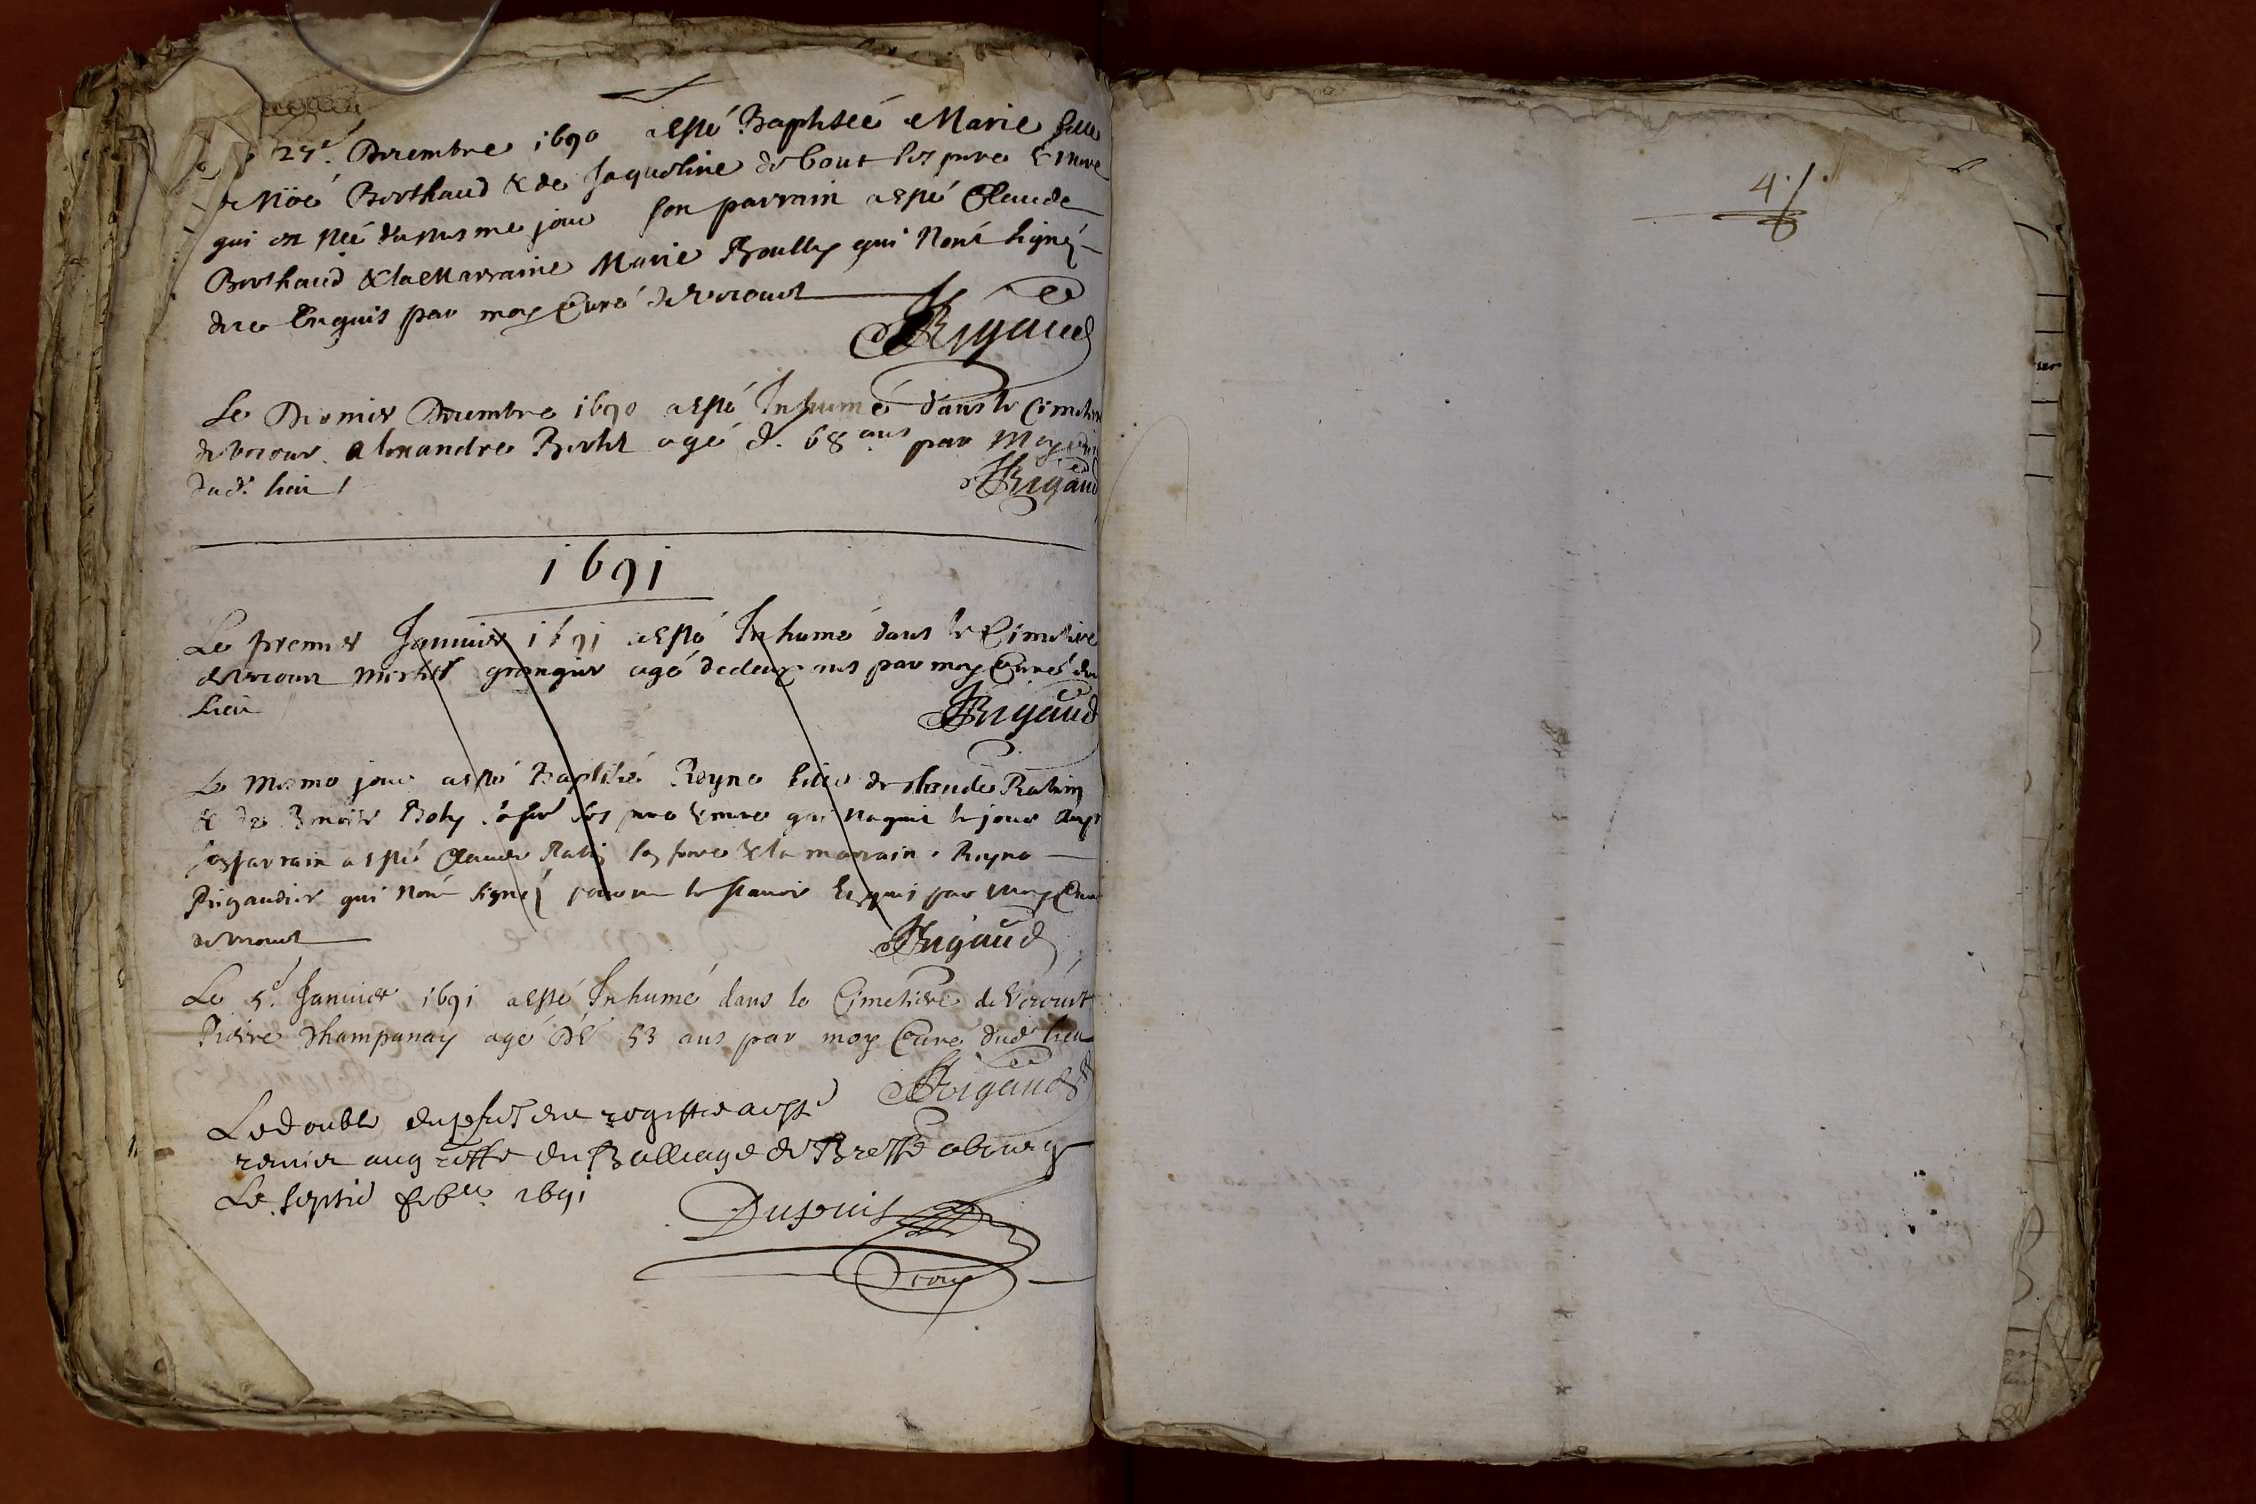 27e. Decembre 1690 a Esté Baptisée Marie fille
de Noé Berthaud & de Jaqueline debout ses pere & mere
qui est née du mesme jour son parrain a esté Claude
Berthaud & la Marraine Marie Broully qui n'ont signé
de ce Enquis par moy Curé de Vecourt
JRigaud
Le Dernier Decembre 1690 a Esté Inhumé dans le Cimetiere
de Alexandre Berht agé d. 68 ans par Moy
dud. lieu
JRigaud
1691
Le premier Janvier 1691 a Esté Inhumé dans le Cimetiere
grangier agé de deux ans par moy Curé du
Lieu
JRigaud
Le Mesme jour a esté Baptisée Reyne fille de Claude Rabuy
& de Benoite Boly ses pere & mere qui naquit le jour
son parrain a esté Claude son frere & la marraine Reyne
Rigaudier qui n'ont signé pour ne le scavoir Enquis par Moy Curé
JRigaud
Le 5e. Janvier 1691 a Esté Inhumé dans le Cimetiere de Vecourt
Pierre Champanay agé DE 53 ans par moy Curé dud. lieu
JRigaud
Le double du presend registre a esté
remis au greffe du Balliage de Bresse a bourg
Le septie febvr. 1691
Dupuis
4.